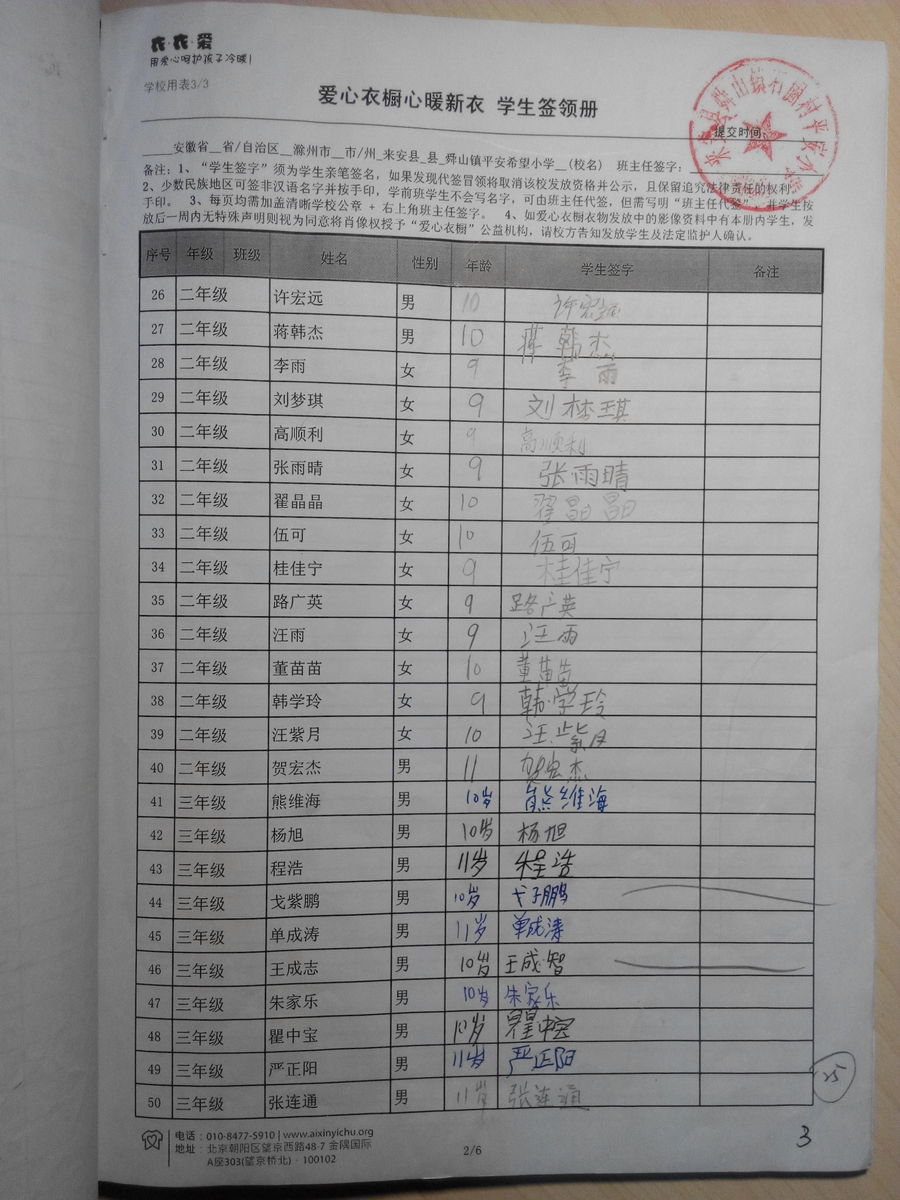 衣·衣·爱
用爱心呵护孩子冷暖!
学校用表3/3
爱心衣橱心暖新衣 学生签领册
提交时间:
安徽省__省/自治区__滁州市__市/州_来安县_县_舜山镇平安希望小学__(校名) 班主任签字:
备注:1、“学生签字”须为学生亲笔签名,如果发现代签冒领将取消该校发放资格并公示,且保留追究法律责任的权利。
2、少数民族地区可签非汉语名字并按手印,学前班学生不会写名字,可由班主任代签,但需写明“班主任代签”,并学生按
手印。 3、每页均需加盖清晰学校公章 + 右上角班主任签字。 4、如爱心衣橱衣物发放中的影像资料中有本册内学生,发
放后一周内无特殊声明则视为同意将肖像权授予“爱心衣橱”公益机构,请校方告知发放学生及法定监护人确认。
序号 年级 班级 姓名 性别 年龄 学生签字 备注
26 二年级 许宏远 男 10 许宏远
27 二年级 蒋韩杰 男 10 蒋韩杰
28 二年级 李雨 女 9 李雨
29 二年级 刘梦琪 女 9 刘梦琪
30 二年级 高顺利 女 9 高顺利
31 二年级 张雨晴 女 9 张雨晴
32 二年级 翟晶晶 女 10 翟晶晶
33 二年级 伍可 女 10 伍可
34 二年级 桂佳宁 女 9 桂佳宁
35 二年级 路广英 女 9 路广英
36 二年级 汪雨 女 9 汪雨
37 二年级 董苗苗 女 10 董苗苗
38 二年级 韩学玲 女 9 韩学玲
39 二年级 汪紫月 女 10 汪紫月
40 二年级 贺宏杰 男 11 贺宏杰
41 三年级 熊维海 男 10岁 熊维海
42 三年级 杨旭 男 10岁 杨旭
43 三年级 程浩 男 11岁 程浩
44 三年级 戈紫鹏 男 10岁 戈子鹏
45 三年级 单成涛 男 11岁 单成涛
46 三年级 王成志 男 10岁 王成智
47 三年级 朱家乐 男 10岁 朱家乐
48 三年级 瞿中宝 男 10岁 瞿中宝
49 三年级 严正阳 男 11岁 严正阳
50 三年级 张连通 男 11岁 张连通
25
电话:010-8477-5910 | www.aixinyichu.org
地址:北京朝阳区望京西路48-7 金隅国际
A座303(望京桥北)· 100102
2/6
3